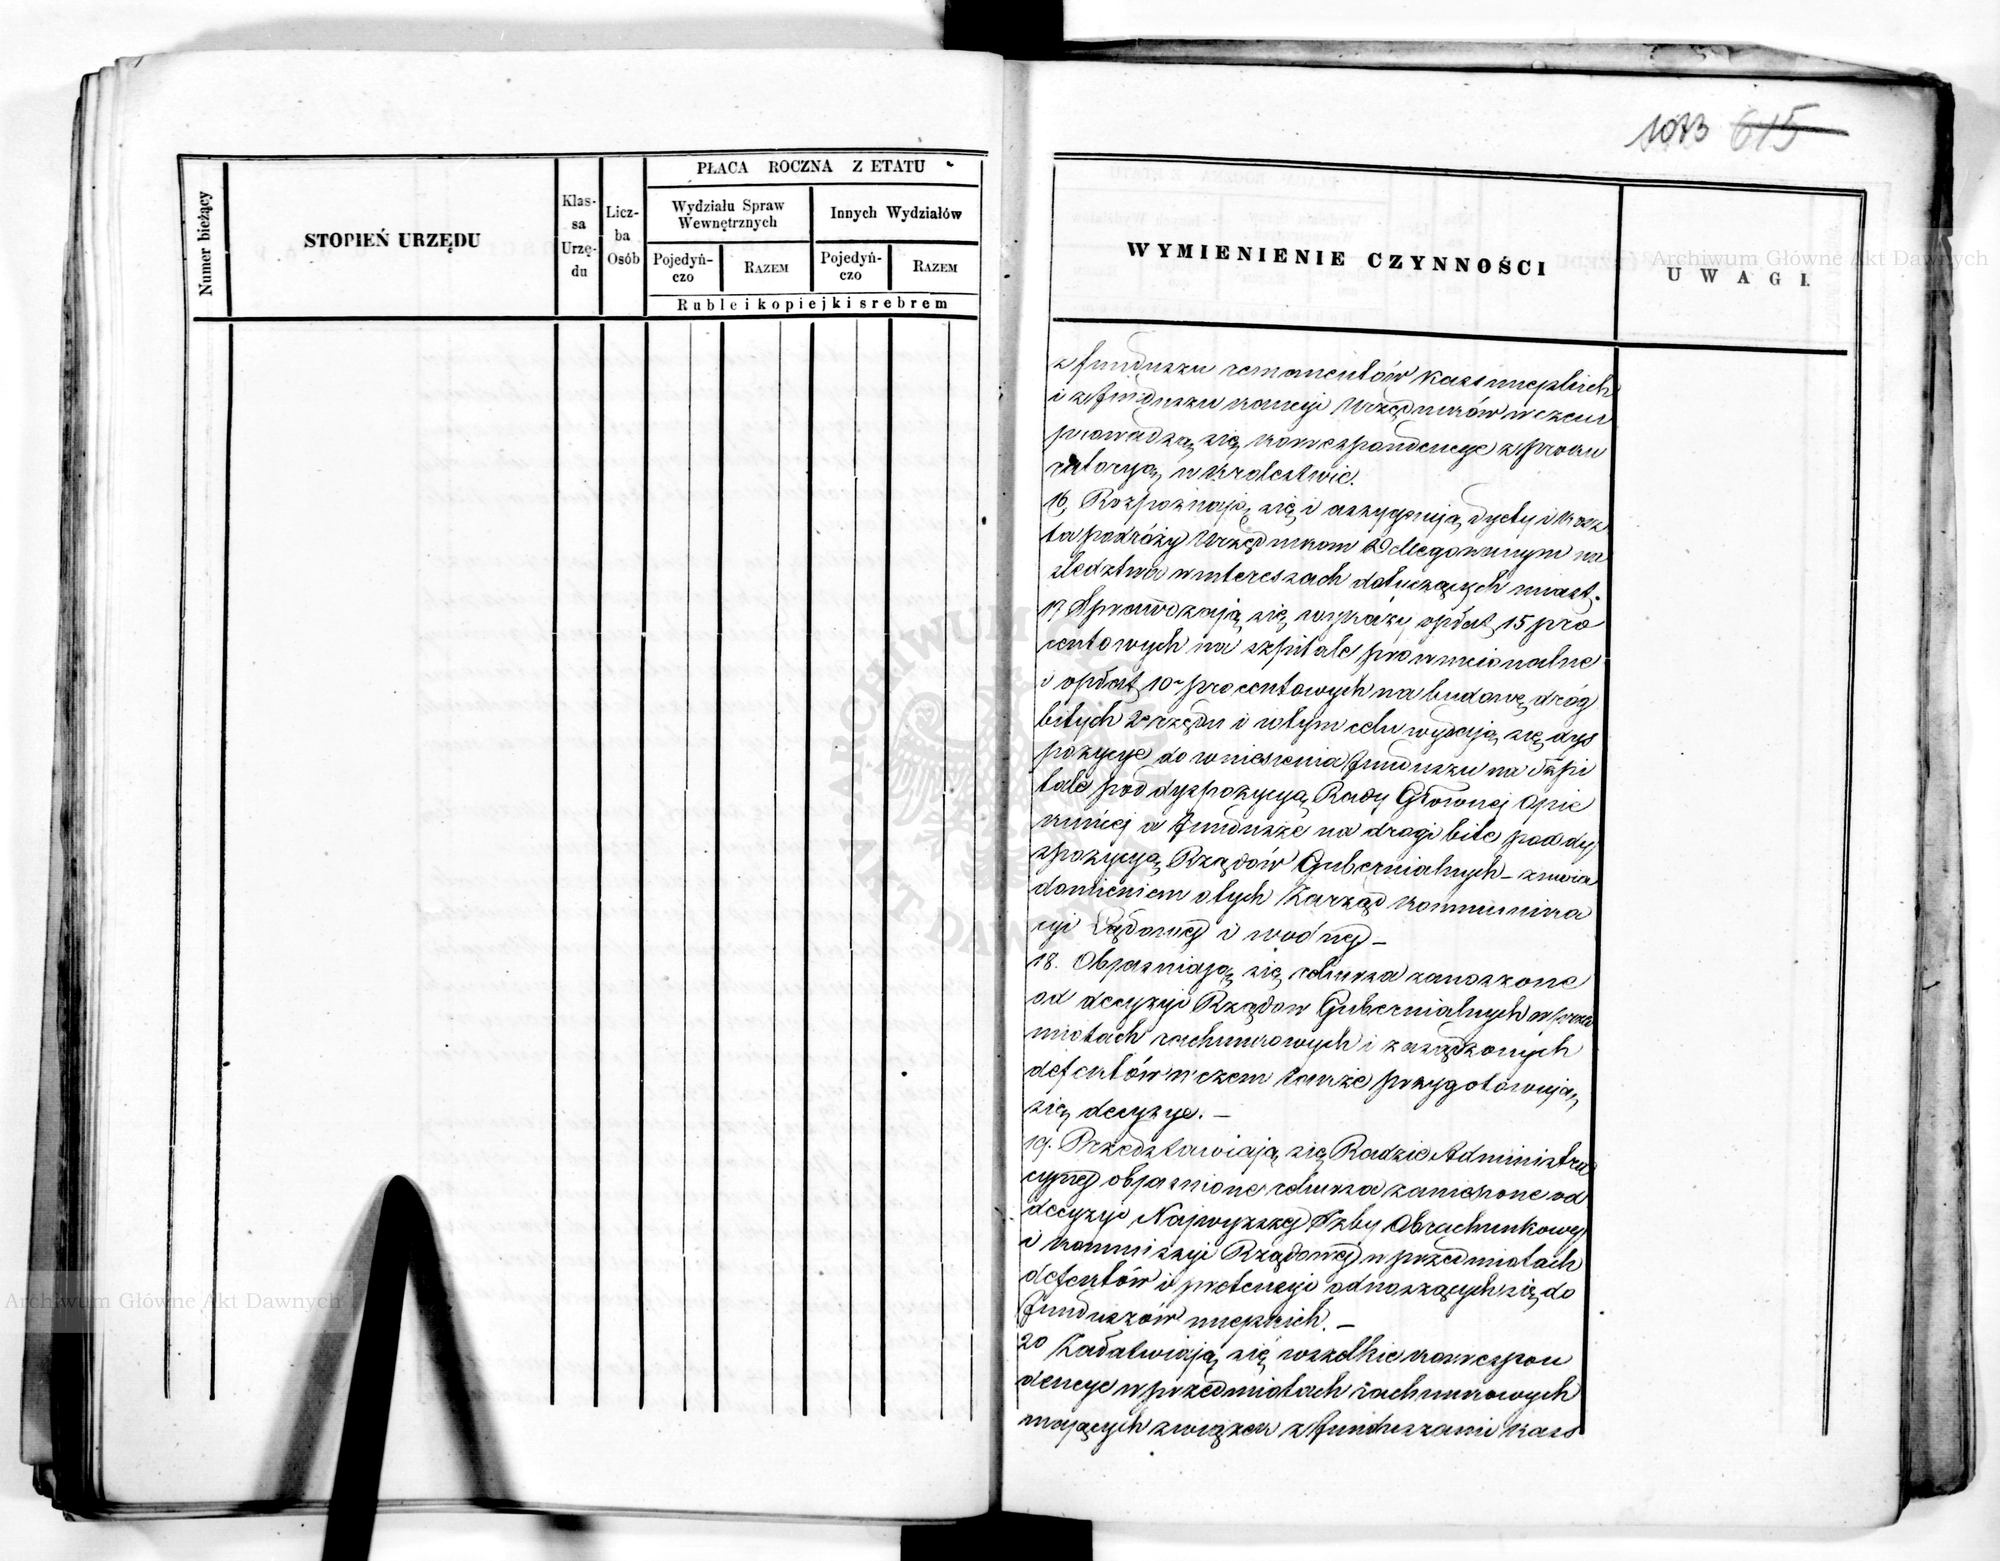 1073 615
Numer bieżący
STOPIEŃ URZĘDU
Klas-
sa
Urzę-
du
Licz-
ba
Osób
PŁACA ROCZNA Z ETATU
Wydziału Spraw
Wewnętrznych
Innych Wydziałów
Pojedyń-
czo
RAZEM
Pojedyń-
czo
RAZEM
Ruble i kopiejki srebrem
WYMIENIENIE CZYNNOŚCI
UWAGI.
z funduszu remanentów kass miejskich
i z funduszu kaucyi Urzędników w czem
prowadzą się korrespondencye z proku
ratoryą w Królestwie.
16, Rozpoznają się i assygnują dyety i kosz
ta podróży Urzędnikom Delegowanym na
śledztwa w interessach dotyczących miast.
17 Sprawdzają się wykazy opłat 15 pro
centowych na szpitale prowincionalne
i opłat 10 procentowych na budowę dróg
bitych 2 rzędu i w tym celu wydają się dys
pozycye do wniesienia funduszu na Szpi
tale pod dyspozycyą Rady Głównej Opie
kuńczej a fundusze na drogi bite pod dy
spozycyą Rządów Gubernialnych – z uwia
domieniem o tych Zarząd Kommunika
cyi Lądowej i wodnej –
18. Objaśniają się rekursa zanoszone
od decyzyi Rządów Gubernialnych w przed
miotach rachunkowych i zarządzonych
defektów w czem także przygotowują
się decyzye. –
19. Przedstawiają się Radzie Administra
cyjnej objaśnione rekursa zaniesione od
decyzyi Najwyższej Izby Obrachunkowej
i Kommissyi Rządowej w przedmiotach
defektów i pretensyi odnoszących się do
funduszów miejskich. –
20 Załatwiają się wszelkie korrespon
dencye w przedmiotach rachunkowych
mających związek z funduszami kass
Archiwum Główne Akt Dawnych
Archiwum Główne Akt Dawnych
ARCHIWUM GŁÓWNE AKT DAWNYCH